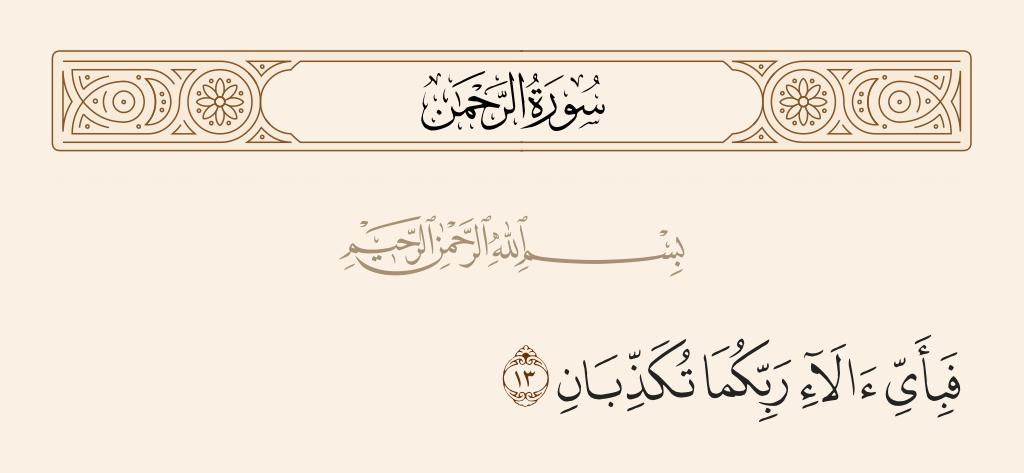 سُورَةُ الرَّحْمَٰن
بِسْمِ ٱللَّهِ ٱلرَّحْمَٰنِ ٱلرَّحِيمِ
فَبِأَىِّ ءَالَآءِ رَبِّكُمَا تُكَذِّبَانِ ١٣